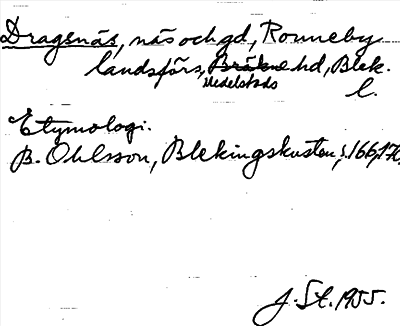 Dragsnäs, näs och gd, Ronneby
landsförs, Bräkne hd, Blek.
Medelstads
l.
Etymologi.
B. Ohlsson, Blekingskusten, s. 166, 170,
J. St. 1955.